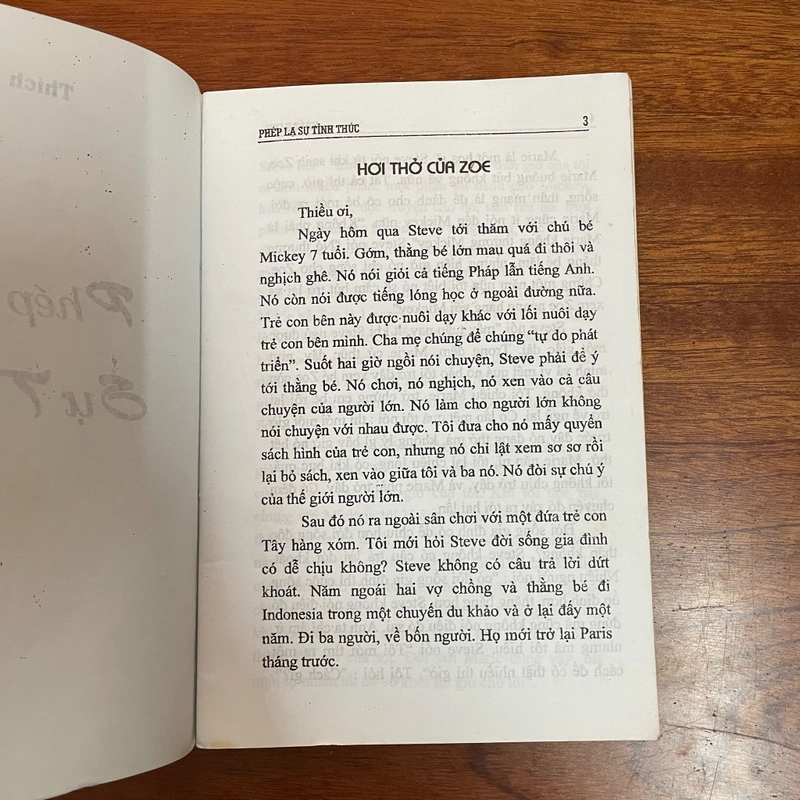 Thích
Phép
Sự T
PHÉP LẠ SỰ TỈNH THỨC 3
HƠI THỞ CỦA ZOE
Thiều ơi,
Ngày hôm qua Steve tới thăm với chú bé
Mickey 7 tuổi. Gớm, thằng bé lớn mau quá đi thôi và
nghịch ghê. Nó nói giỏi cả tiếng Pháp lẫn tiếng Anh.
Nó còn nói được tiếng lóng học ở ngoài đường nữa.
Trẻ con bên này được nuôi dạy khác với lối nuôi dạy
trẻ con bên mình. Cha mẹ chúng để chúng “tự do phát
triển”. Suốt hai giờ ngồi nói chuyện, Steve phải để ý
tới thằng bé. Nó chơi, nó nghịch, nó xen vào cả câu
chuyện của người lớn. Nó làm cho người lớn không
nói chuyện với nhau được. Tôi đưa cho nó mấy quyển
sách hình của trẻ con, nhưng nó chỉ lật xem sơ sơ rồi
lại bỏ sách, xen vào giữa tôi và ba nó. Nó đòi sự chú ý
của thế giới người lớn.
Sau đó nó ra ngoài sân chơi với một đứa trẻ con
Tây hàng xóm. Tôi mới hỏi Steve đời sống gia đình
có dễ chịu không? Steve không có câu trả lời dứt
khoát. Năm ngoái hai vợ chồng và thằng bé đi
Indonesia trong một chuyến du khảo và ở lại đấy một
năm. Đi ba người, về bốn người. Họ mới trở lại Paris
tháng trước.